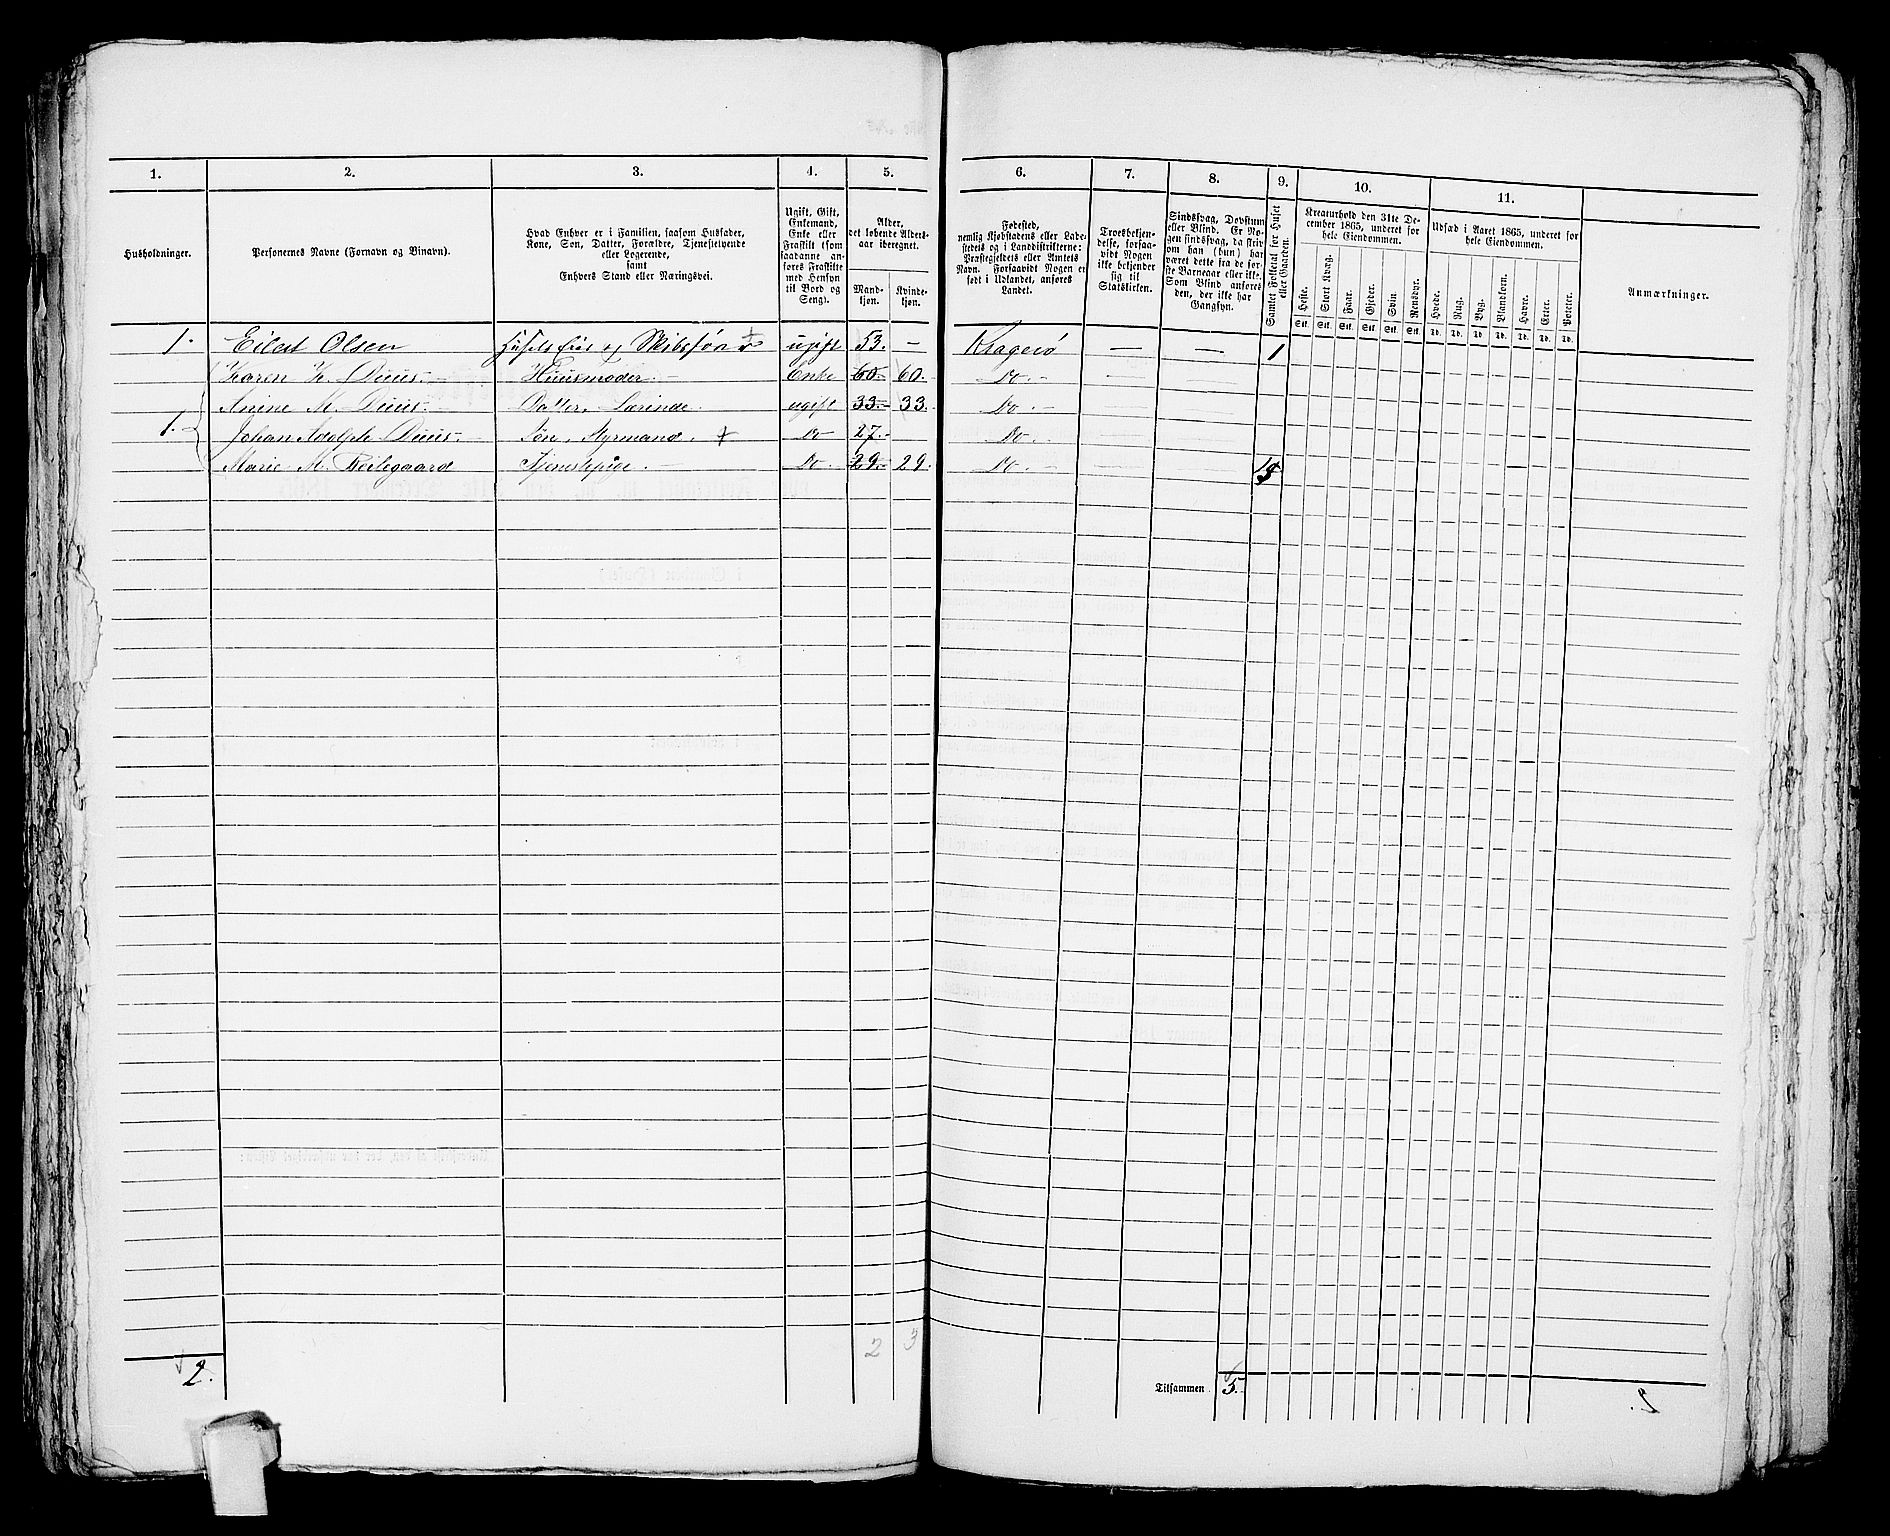 1. 2. 3. 4. 5. 6. 7. 8. 9. 10. 11.
Husholdninger.
Personernes Navne (Fornavn og Binavn).
Hvad Enhver er i Familien, saasom Husfader,
Kone, Søn, Datter, Forældre, Tjenestetyende
eller Logerende,
samt
Enhvers Stand eller Næringsvei.
Ugift, Gift,
Enkemand,
Enke eller
Fraskilt (som
saadanne an-
føres Fraskilte
med Hensyn
til Bord og
Seng).
Alder,
det løbende Alders-
aar iberegnet.
Mand-
kjøn.
Kvinde-
kjøn.
Fødested,
nemlig Kjøbstadens eller Lade-
stedets og i Landdistrikterne:
Præstegjeldets eller Amtets
Navn. Forsaavidt Nogen er
født i Udlandet, anføres
Landet.
Troesbekjen-
delse, forsaa-
vidt Nogen
ikke bekjender
sig til
Statskirken.
Sindssvag, Døvstum
eller Blind. Er No-
gen sindssvag, da skriv
om han (hun) har
været dette fra de før-
ste Barneaar eller ikke.
Som Blind anføres
den, der ikke har
Gangsyn.
Samlet Folketal for Huset
eller Gaarden.
Kreaturhold den 31te De-
cember 1865, underet for
hele Eiendommen.
Heste. Stort Kvæg. Faar. Gjeder. Svin. Rensdyr.
Stk. Stk. Stk. Stk. Stk. Stk.
Udsæd i Aaret 1865, underet for
hele Eiendommen.
Hvede. Rug. Byg. Blandkorn. Havre. Erter. Poteter.
Td. Td. Td. Td. Td. Td. Td.
Anmærkninger.
1. Eilert Olsen Huseleier og Skibsfører ugift 53. — Kragerø — — 1
Karen K. Duus. Huusmoder. Enke 60. 60. Do. —
1. Anine M. Duus. Datter, Lærinde. ugift 33. 33. Do. —
Johan Adolph Duus. Søn, Styrmand. Do 27. Do. —
Marie M. Beilegaard Tjenestepige. Do. 29. 29. Do. —
2. 2 3 Tilsammen. 5. 2.